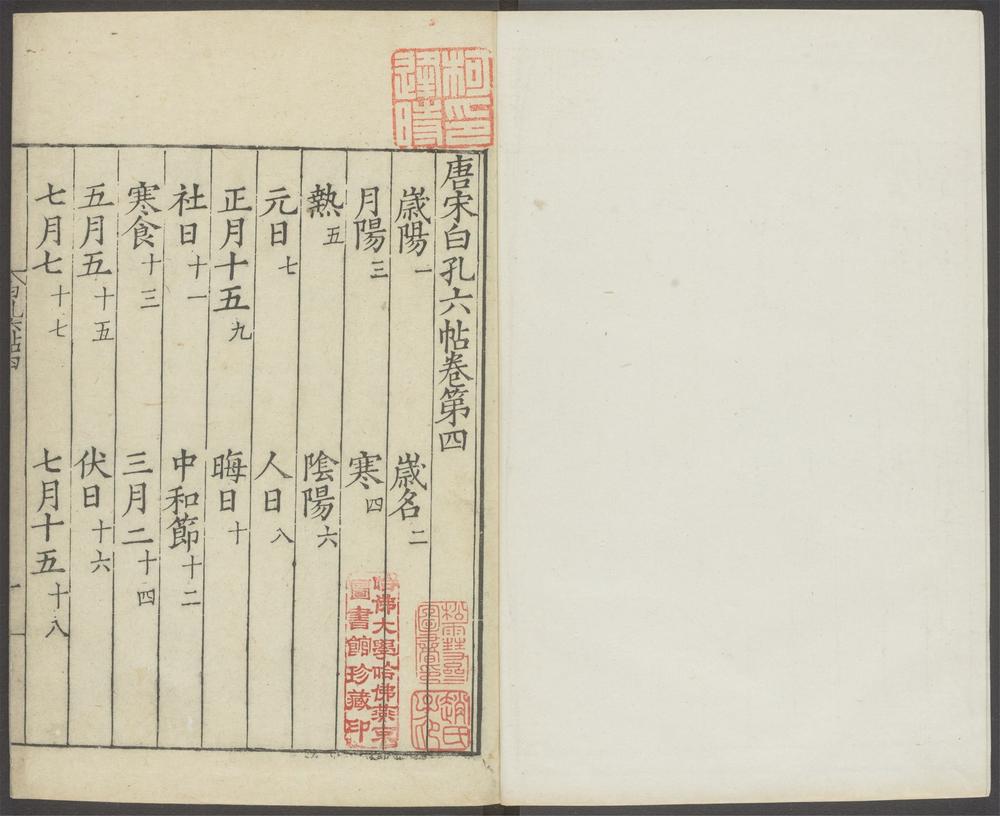 唐宋白孔六帖卷第四
歲陽一 歲名二
月陽三 寒四
熱五 陰陽六
元日七 人日八
正月十五九 晦日十
社日十一 中和節十二
寒食十三 三月二十四
五月五十五 伏日十六
七月七十七 七月十五十八
哈佛大學哈佛燕京
圖書館珍藏印